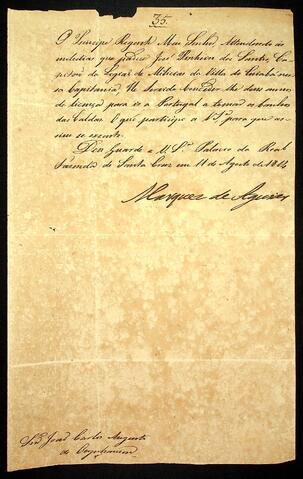 35.
O Principe Regente Meu Senhor Attendendo ás
molestias que padece José Pinheiro dos Santos Ca-
pitaõ da Legiaõ de Milicias da Villa do Cuiabá nes-
sa Capitania: He Servido conceder-lhe dous annos
de licença para ir a Portugal a tomar os banhos
das Caldas. O que participo a V. Sª para que as-
sim se execute.
Deos Guarde a V. Sª Palacio da Real
Fazenda de Santa Cruz em 11 de Agosto de 1814
Marquez de Aguiar
Snr. João Carlos Augusto
de Oeynhausen